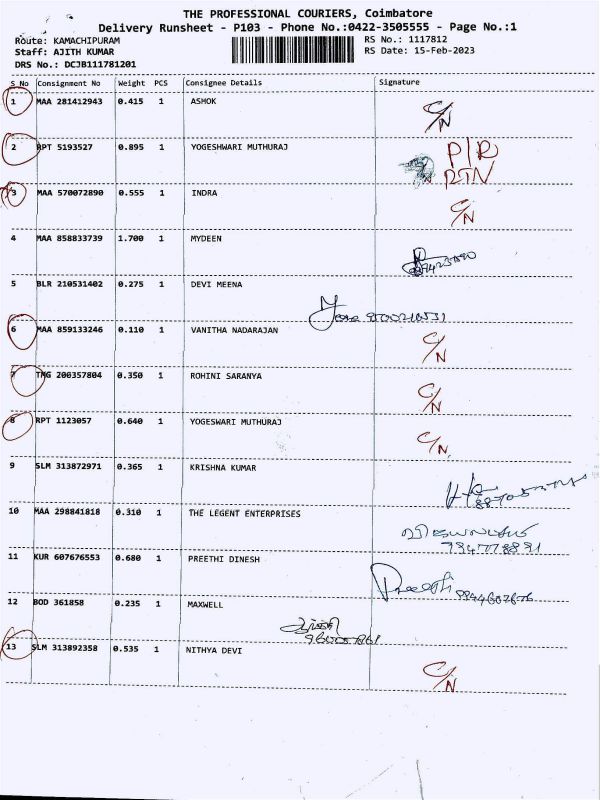 THE PROFESSIONAL COURIERS, Coimbatore
Delivery Runsheet - P103 - Phone No.:0422-3505555 - Page No.:1
Route: KAMACHIPURAM RS No.: 1117812
Staff: AJITH KUMAR RS Date: 15-Feb-2023
DRS No.: DCJB111781201
S No Consignment No Weight PCS Consignee Details Signature
1 MAA 281412943 0.415 1 ASHOK C/N
2 RPT 5193527 0.895 1 YOGESHWARI MUTHURAJ P/R
RTN
3 MAA 570072890 0.555 1 INDRA C/N
4 MAA 858833739 1.700 1 MYDEEN
5 BLR 210531402 0.275 1 DEVI MEENA
6 MAA 859133246 0.110 1 VANITHA NADARAJAN C/N
7 TMG 200357804 0.350 1 ROHINI SARANYA C/N
8 RPT 1123057 0.640 1 YOGESWARI MUTHURAJ C/N
9 SLM 313872971 0.365 1 KRISHNA KUMAR
10 MAA 298841818 0.310 1 THE LEGENT ENTERPRISES
11 KUR 607676553 0.680 1 PREETHI DINESH Preethi
12 BOD 361858 0.235 1 MAXWELL
13 SLM 313892358 0.535 1 NITHYA DEVI C/N